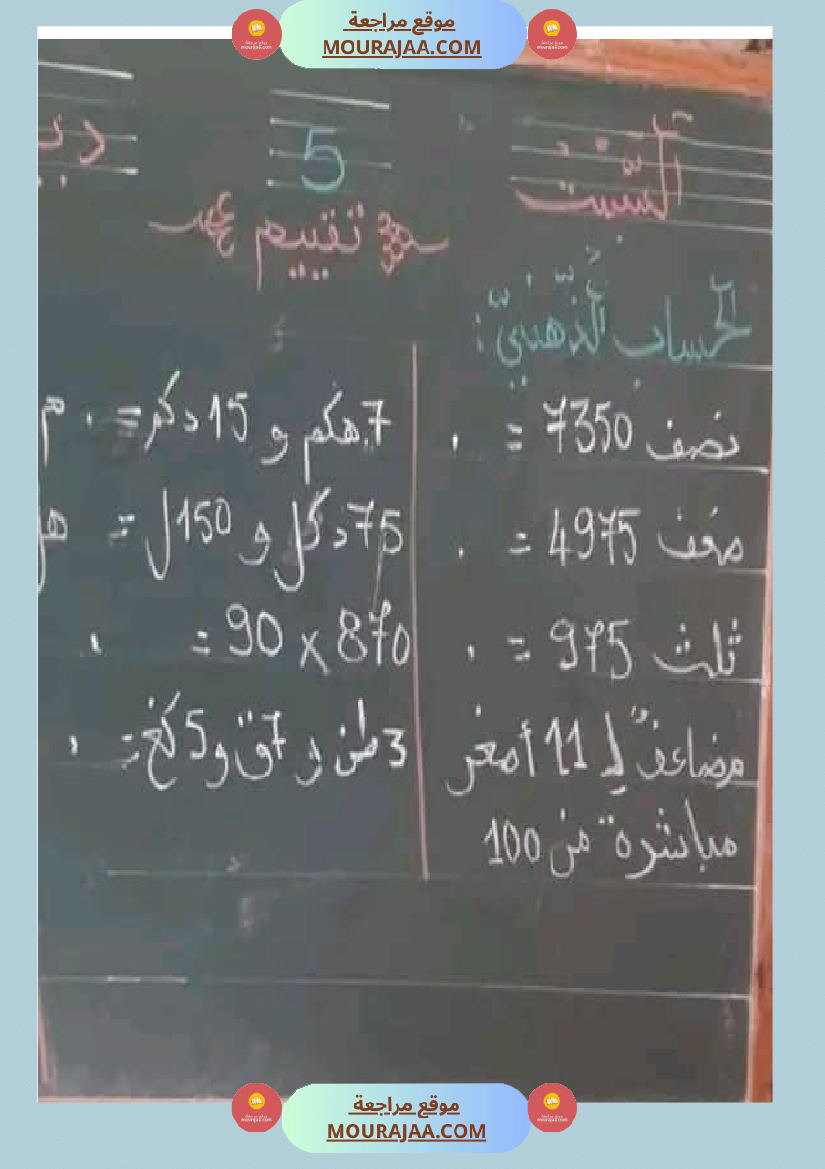 موقع مراجعة
MOURAJAA.COM
السّبت
5
تقييم
الحساب الذّهنيّ:
نصف 7350 = .
ضعف 4975 = .
ثلث 975 = .
مضاعف لـ 11 أصغر
مباشرة من 100
7 هكم و 15 دكم = . م
75 دكل و 150 ل = هل
870 × 90 = .
3 طن و 7 ق و 5 كغ = .
موقع مراجعة
MOURAJAA.COM